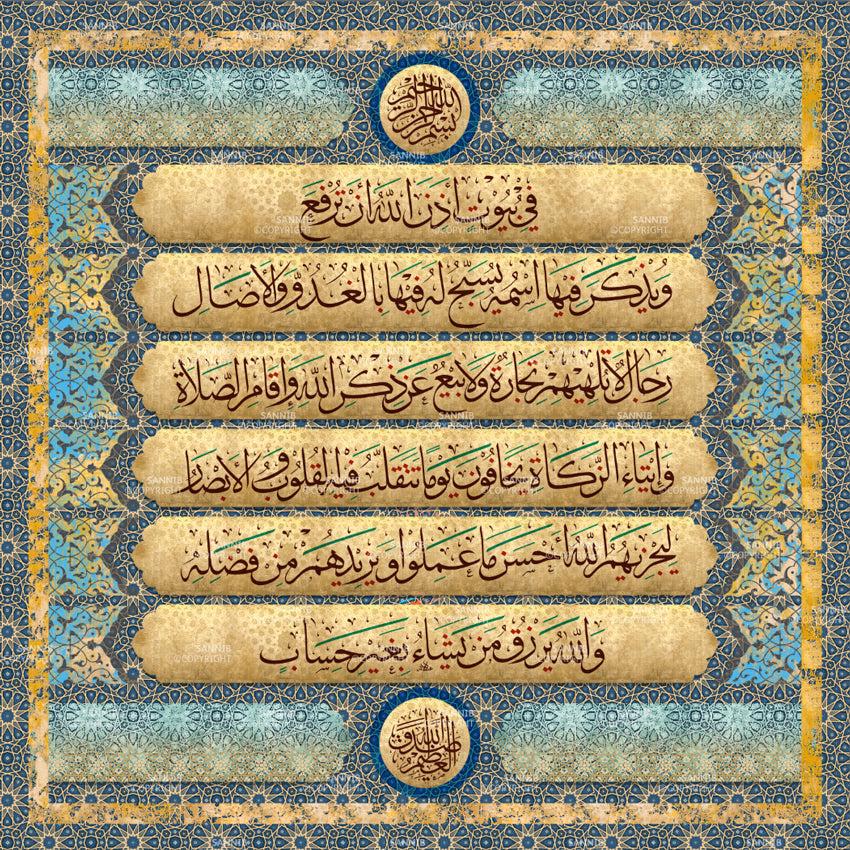 بسم الله الرحمن الرحيم
في بيوت أذن الله أن ترفع
ويذكر فيها اسمه يسبح له فيها بالغدو والآصال
رجال لا تلهيهم تجارة ولا بيع عن ذكر الله وإقام الصلاة
وإيتاء الزكاة يخافون يوما تتقلب فيه القلوب والأبصار
ليجزيهم الله أحسن ما عملوا ويزيدهم من فضله
والله يرزق من يشاء بغير حساب
صدق الله العظيم
SANNIB
©COPYRIGHT